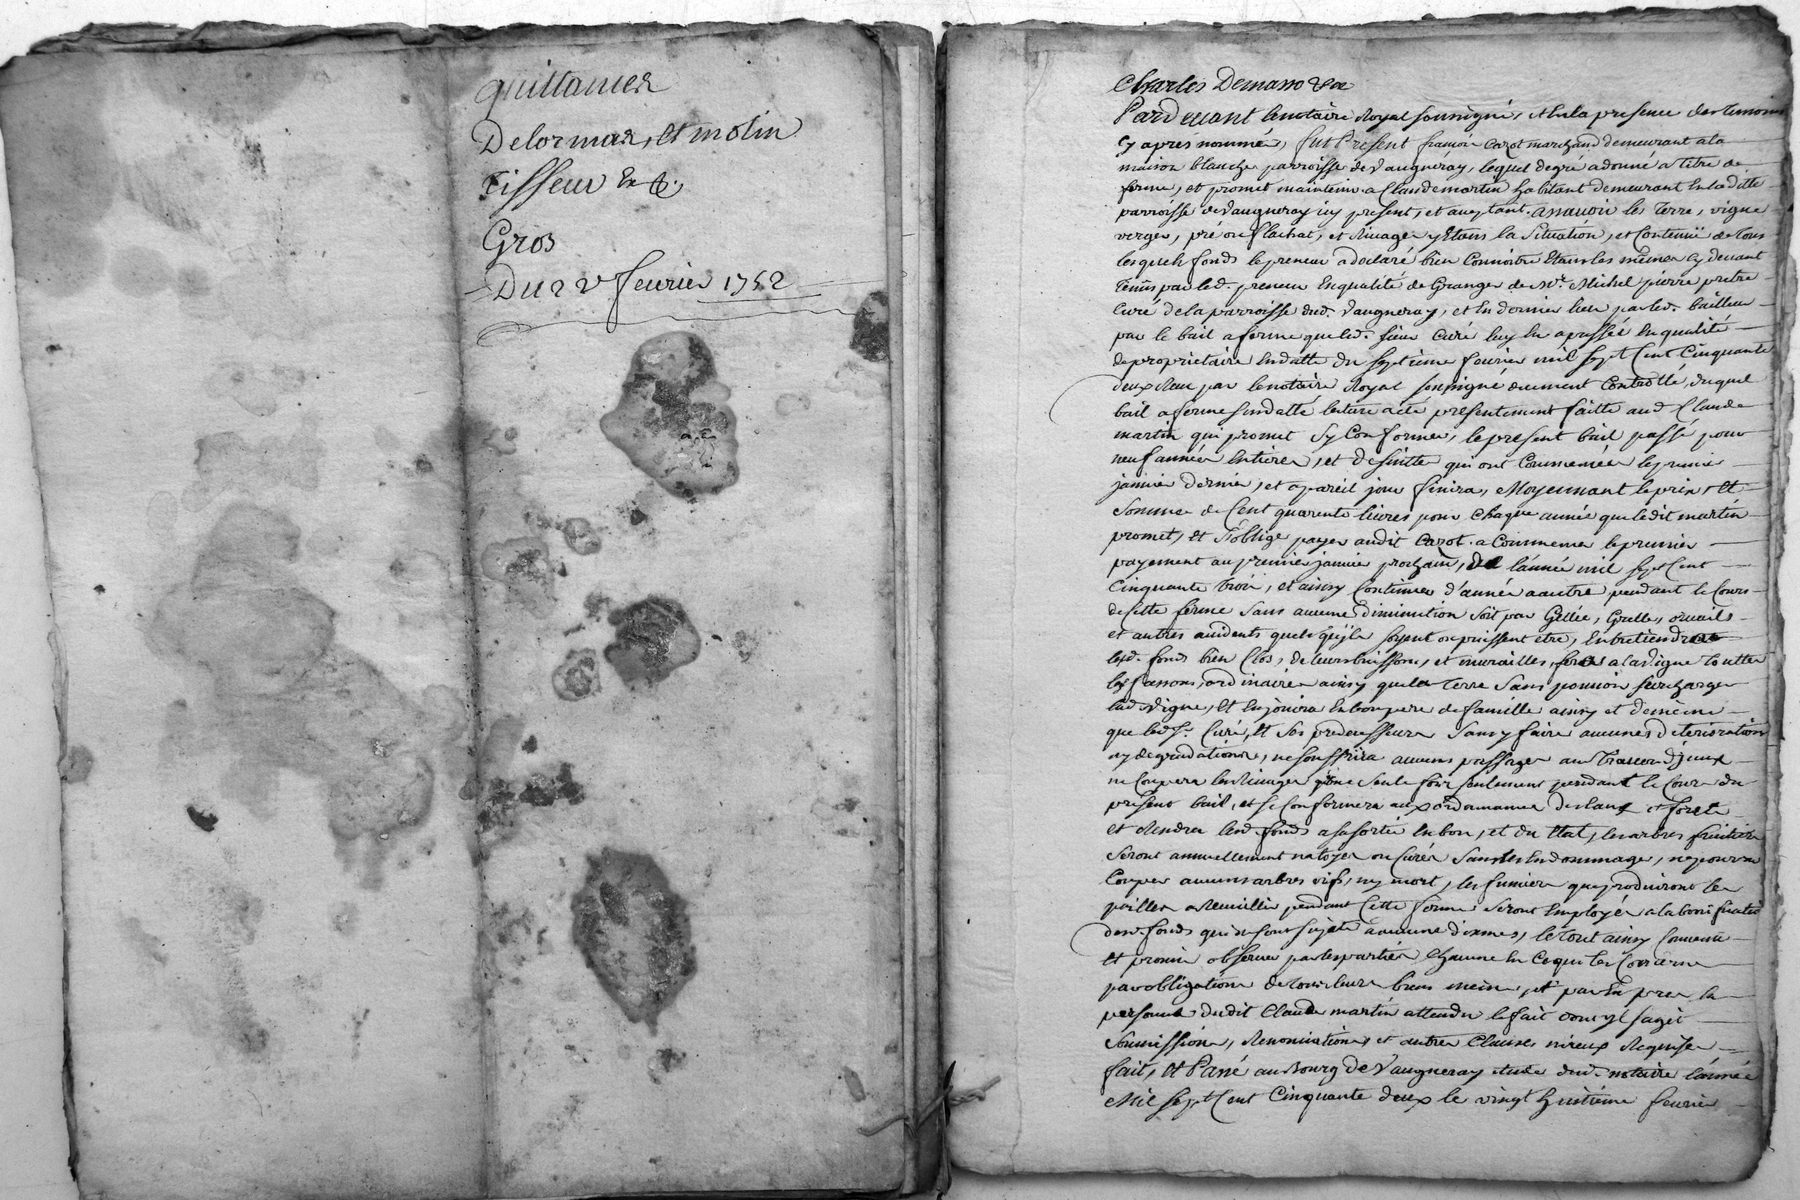 quittances
Delormas, et molin
tisseur &c.
Gros
Du 22e feurier 1752
Charles Demasso &ca
Pard euant le notaire Royal soussigné, et en la presence des temoins
Cy aprés nommés, fut Present françois Carot marchand demeurant a la
maison blanche parroisse de Vaugneray, lequel de gré a donné a titre de
ferme, et promet maintenir a Claude martin habitant demeurant en laditte
parroisse de Vaugneray icy present, et aceptant. assauoir les terre, vigne
verger, pré ou flachat, et riuages y Etans la Situation, et Contenüe de tous
lesquels fonds le preneur a declaré bien Connoitre Etans les mêmes cy deuant
tenus par led. preneur En qualité de Granger de Mr. Michel pierre pretre
Curé de la parroisse dud. Vaugneray, et En dernier lieu par led. bailleur
par le bail a ferme que led. sieur Curé luy En a passé En qualité
de proprietaire En datte du septieme feurier mil sept Cent Cinquante
deux Reçu par le notaire Royal soussigné duement Controllé, duquel
bail a ferme susdatté lecture a eté presentement faitte aud. Claude
martin qui promet sy Conformer, le present bail passé pour
neuf années Entieres, et de suitte qui ont Commencées le premier
januier dernier, et a pareil jour finira, Moyennant le prix, et
Somme de Cent quarente liures pour Chaque année que ledit martin
promet, et s'oblige payer audit Carot. a Commencer le premier
payement au premier januier prochain, de l'année mil sept Cent
Cinquante trois, et ainsy Continuer d'année a autre pendant le Cours
de Cette ferme Sans aucune diminution soit par Gellée, Grelle, orualle
et autres accidents quels qu'jls soyent ou puissent etre, Entretiendra
lesd. fonds bien Clos, de leurs buissons, et murailles, fera a la vigne touttes
les façons, ordinaires ainsy que la terre Sans pouuoir surcharger
lad. Vigne, Et En jouira En bon pere de famille ainsy et de même
que led. Sr. Curé, Et Ses predecesseurs Sans y faire aucunes deteriorations
ny degradations, ne souffrira aucuns passages au trauers d'jceux
ne Coupera les Riuages qu'une Seule fois seulement pendant le Cours du
present bail, et se Conformera aux ordonnances des Eaux et forets
et Rendra lesd. fonds a sa sortie En bon, et du Etat, les arbres fruitiers
seront annuellement netoyés ou Curés Sans les Endommager, ne pourra
Couper aucuns arbres vifs, ny mort, les fumiers que produiront les
pailles a Recueillir pendant Cette ferme Seront Employés a la bonification
desd. fonds qui ne sont sujets a aucune dixmes, le tout ainsy Conuenû
et promis obseruer par les parties Chacune En Ce qui les Concerne
par obligations de tous leurs biens meme, et par Exprés la
personne dudit Claude martin attendu le fait dont jl sagit
Soumissions, Renonciations, et autres Clauses mieux Requises
fait, et Passé au Bourg de Vaugneray etude dud. notaire l'année
Mil Sept Cent Cinquante deux le vingt huitieme feurier